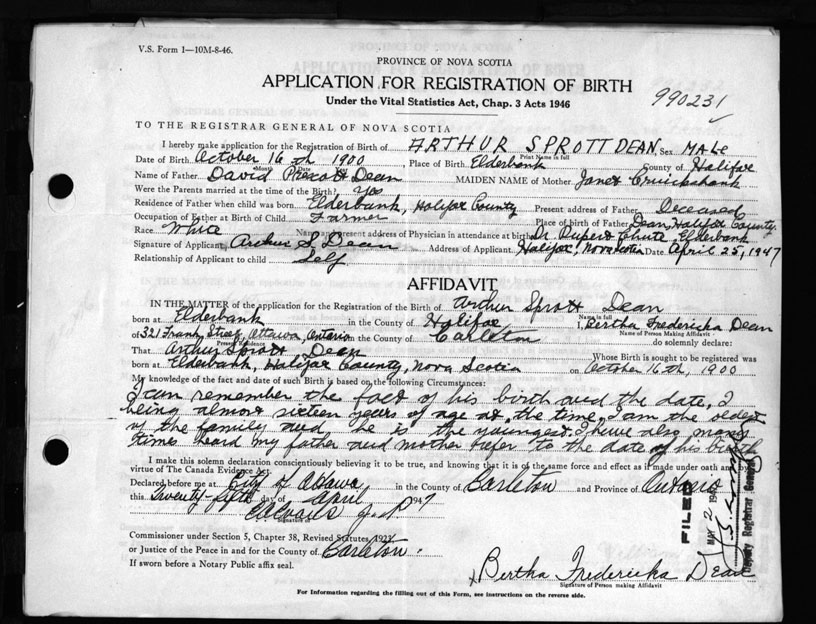 V.S. Form 1—10M-8-46.
PROVINCE OF NOVA SCOTIA
APPLICATION FOR REGISTRATION OF BIRTH
Under the Vital Statistics Act, Chap. 3 Acts 1946
990231
TO THE REGISTRAR GENERAL OF NOVA SCOTIA
I hereby make application for the Registration of Birth of ARTHUR SPROTT DEAN, Sex MALE
Print Name in full
Date of Birth October 16th, 1900, Place of Birth Elderbank County of Halifax
Month Date
Name of Father David Prescott Dean MAIDEN NAME of Mother Janet Cruickshank
Were the Parents married at the time of the Birth? Yes
Residence of Father when child was born Elderbank, Halifax County Present address of Father Deceased
Occupation of Father at Birth of Child Farmer Place of birth of Father Dean, Halifax County.
Race White Name and present address of Physician in attendance at birth Dr. Rupert Chute, Elderbank
Signature of Applicant Arthur S. Dean Address of Applicant Halifax, Nova Scotia Date April 25, 1947
Relationship of Applicant to child Self
AFFIDAVIT
IN THE MATTER of the application for the Registration of the Birth of Arthur Sprott Dean
Name in full
born at Elderbank in the County of Halifax I, Bertha Fredericka Dean
Name of Person Making Affidavit
of 321 Frank Street, Ottawa, Ontario in the County of Carleton do solemnly declare:
Present Residence
That Arthur Sprott Dean Whose Birth is sought to be registered was
born at Elderbank, Halifax County, Nova Scotia on October 16th, 1900
My knowledge of the fact and date of such Birth is based on the following Circumstances:
I can remember the fact of his birth and the date, I
being almost sixteen years of age at the time. I am the oldest
of the family and he is the youngest. I have also many
times heard my father and mother refer to the date of his birth
I make this solemn declaration conscientiously believing it to be true, and knowing that it is of the same force and effect as if made under oath and by
virtue of The Canada Evidence
Declared before me at City of Ottawa in the County of Carleton and Province of Ontario
this Twenty-fifth day of April 1947
Signature of
Commissioner under Section 5, Chapter 38, Revised Statutes, 1923
or Justice of the Peace in and for the County of Carleton.
If sworn before a Notary Public affix seal.
FILED
MAY 2 1947
Deputy Registrar General
x Bertha Fredericka Dean
Signature of Person making Affidavit
For Information regarding the filling out of this Form, see instructions on the reverse side.